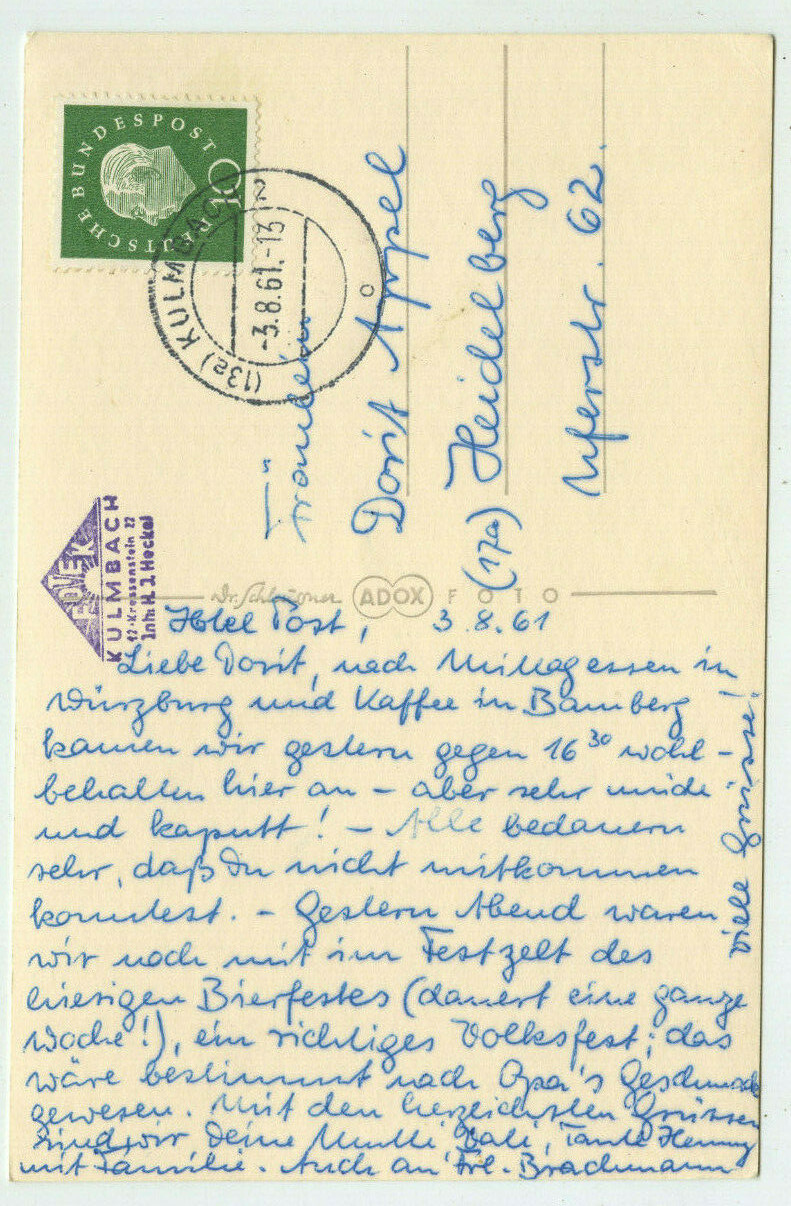 DEUTSCHE BUNDESPOST
(13a) KULMBACH 2
-3.8.61.-13
Fräulein
Dorit Appel
(17a) Heidelberg
Uferstr. 62.
KULMBACH
12·Kressenstein 22
Inh: H. J. Heckel
ADOX FOTO
Hotel Post, 3.8.61
Liebe Dorit, nach Mittagessen in
Würzburg und Kaffee in Bamberg
kamen wir gestern gegen 16 30 wohl-
behalten hier an – aber sehr müde
und kaputt! – Alle bedauern
sehr, daß Du nicht mitkommen
konntest. – Gestern Abend waren
wir noch mit im Festzelt des
hiesigen Bierfestes (dauert eine ganze
Woche!), ein richtiges Volksfest; das
wäre bestimmt nach Opa's Geschmack
gewesen. Mit den herzlichsten Grüssen
sind wir Deine Mutti, Vati, Tante Henny
mit Familie. Auch an Frl. Brachmann
viele Grüsse!